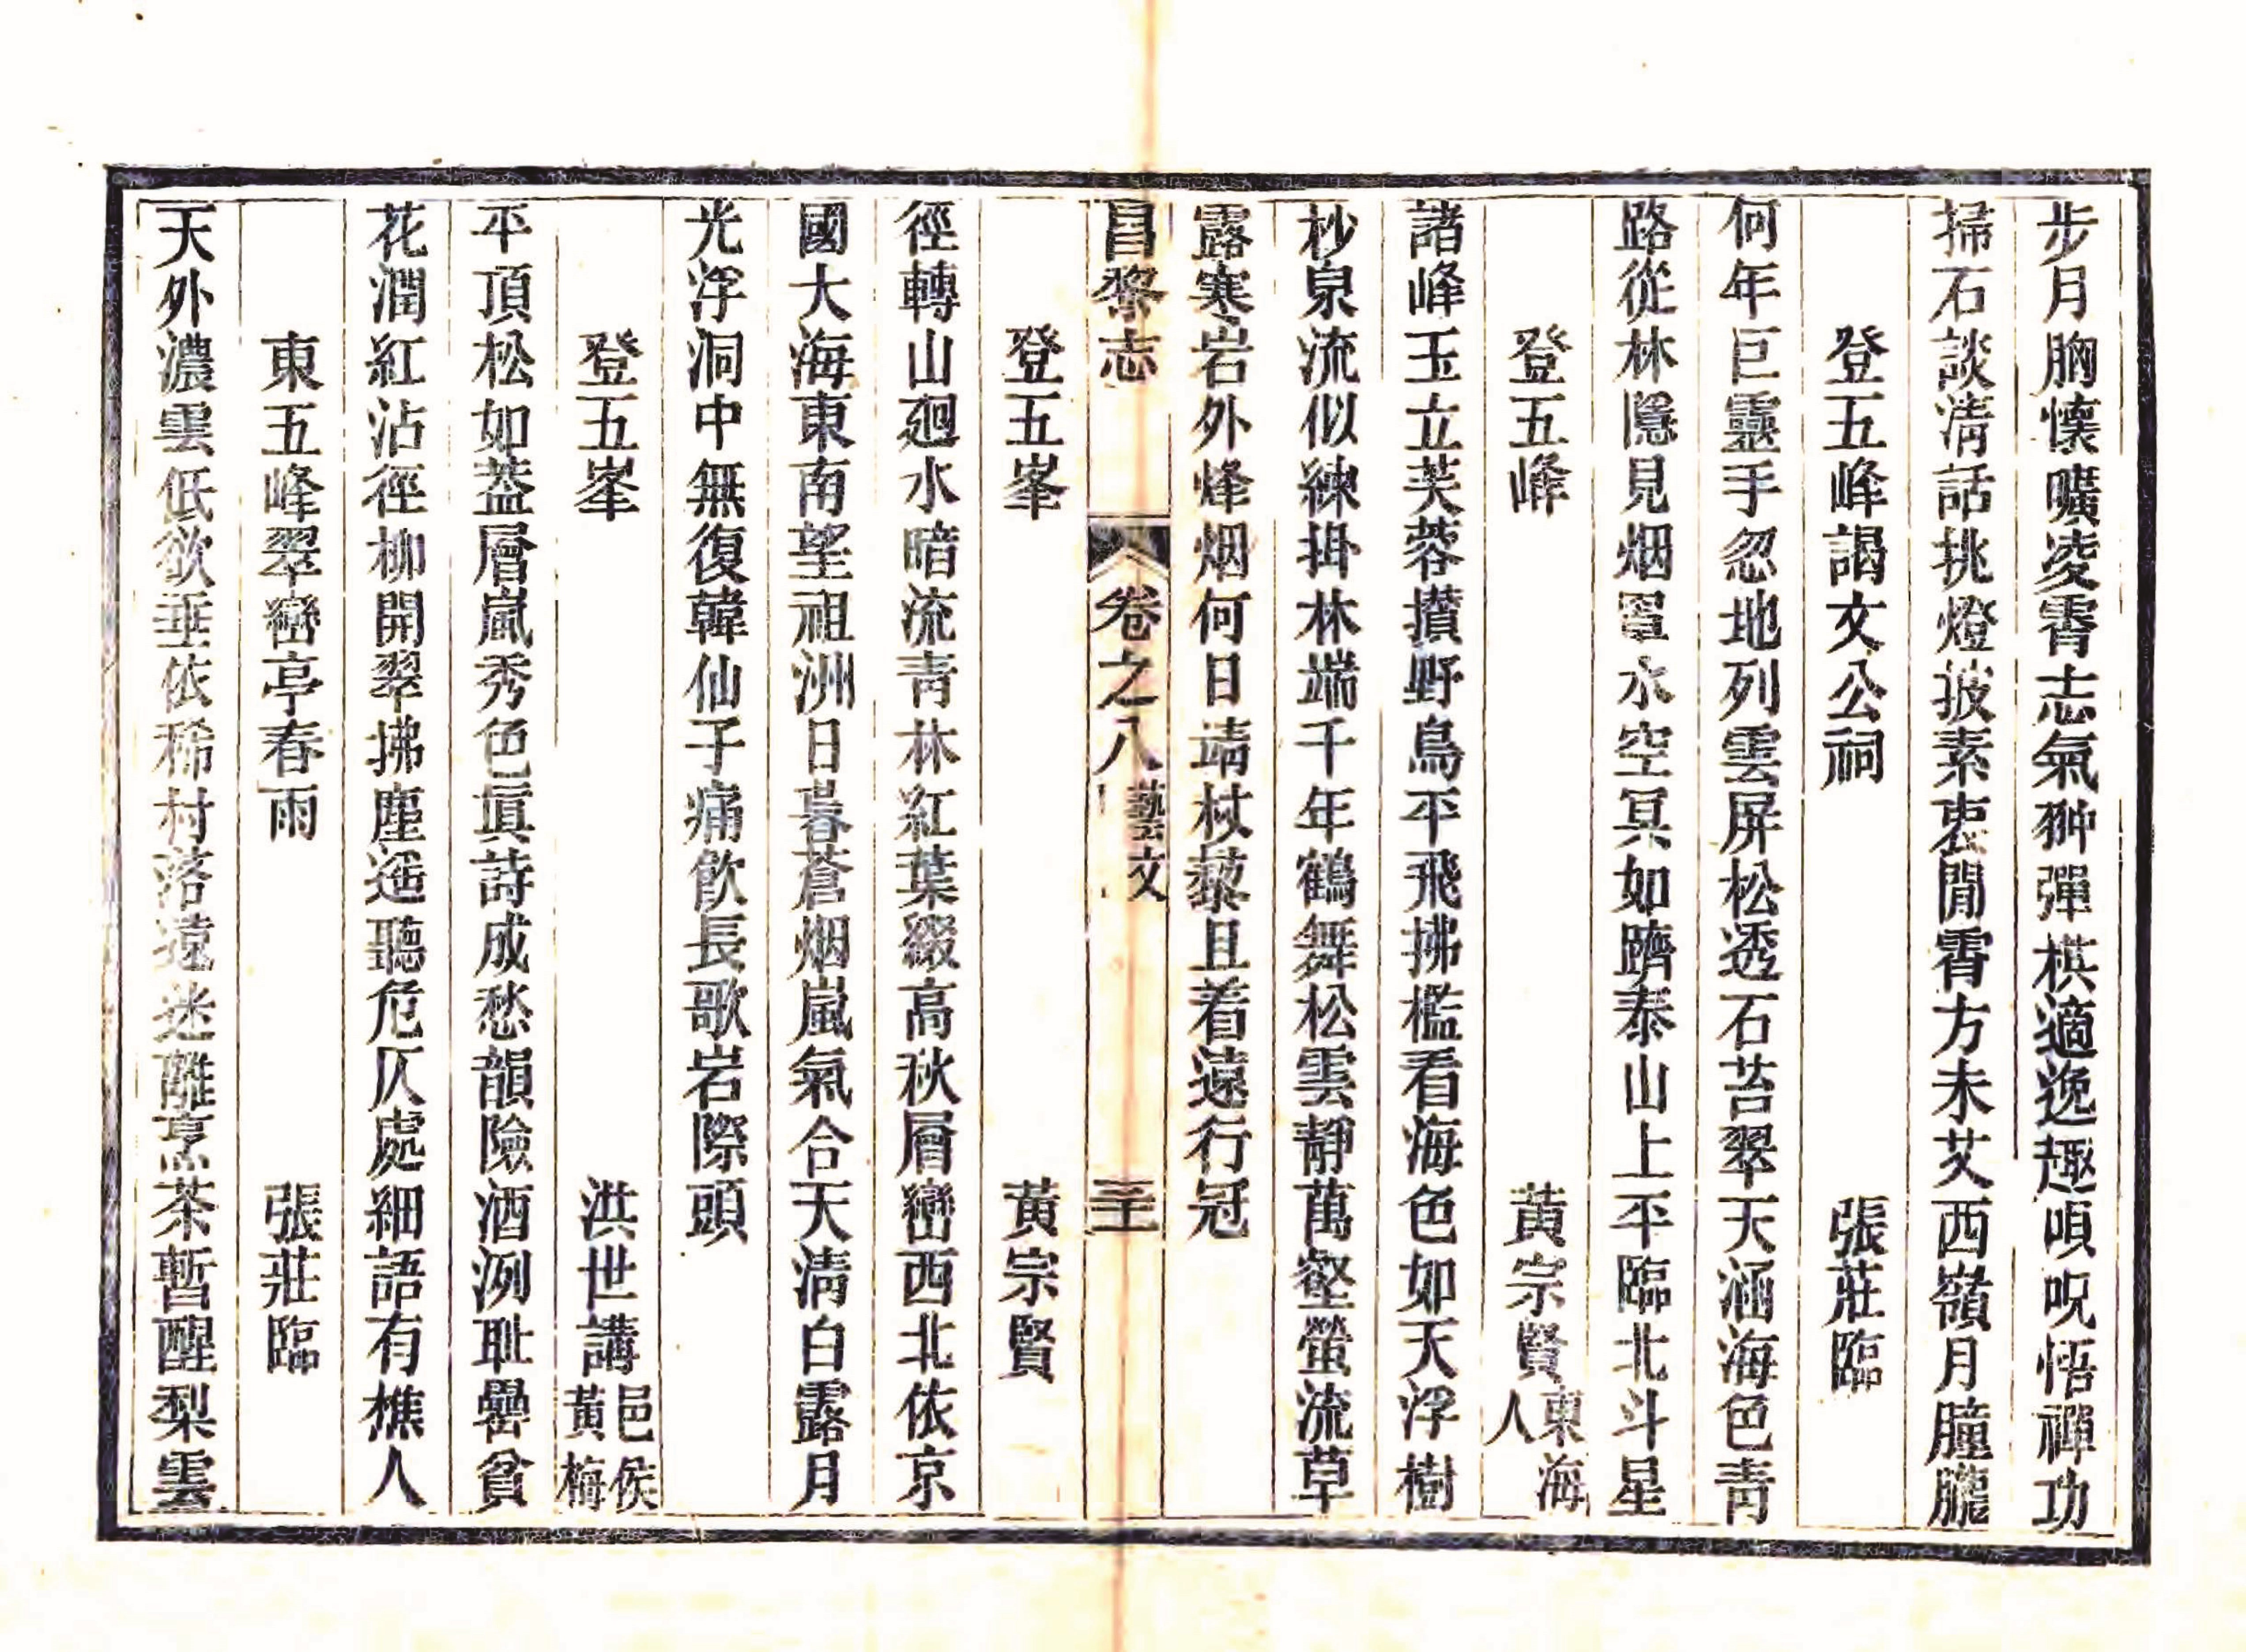 步月胸懷曠凌霄志氣翀彈棋適逸趣唄呪悟禪功
掃石談清話挑燈披素衷閒霄方未艾西嶺月朣朧
登五峰謁文公祠 張莊臨
何年巨靈手忽地列雲屏松透石苔翠天涵海色青
路從林隱見烟罩水空冥如躋泰山上平臨北斗星
登五峰 黃宗賢東海人
諸峰玉立芙蓉攢野鳥平飛拂檻看海色如天浮樹
杪泉流似練掛林端千年鶴舞松雲靜萬壑螢流草
露寒岩外烽烟何日靖杖藜且着遠行冠
昌黎志 卷之八 藝文 三十
登五峯 黃宗賢
徑轉山迴水暗流青林紅葉綴高秋層巒西北依京
國大海東南望祖洲日暮蒼烟嵐氣合天清白露月
光浮洞中無復韓仙子痛飲長歌岩際頭
登五峯 洪世講邑侯黃梅
平頂松如蓋層嵐秀色眞詩成愁韻險酒洌耻罍貧
花潤紅沾徑柳開翠拂塵遥聽危仄處細語有樵人
東五峰翠巒亭春雨 張莊臨
天外濃雲低欲垂依稀村落遠迷離烹茶暫醒梨雲